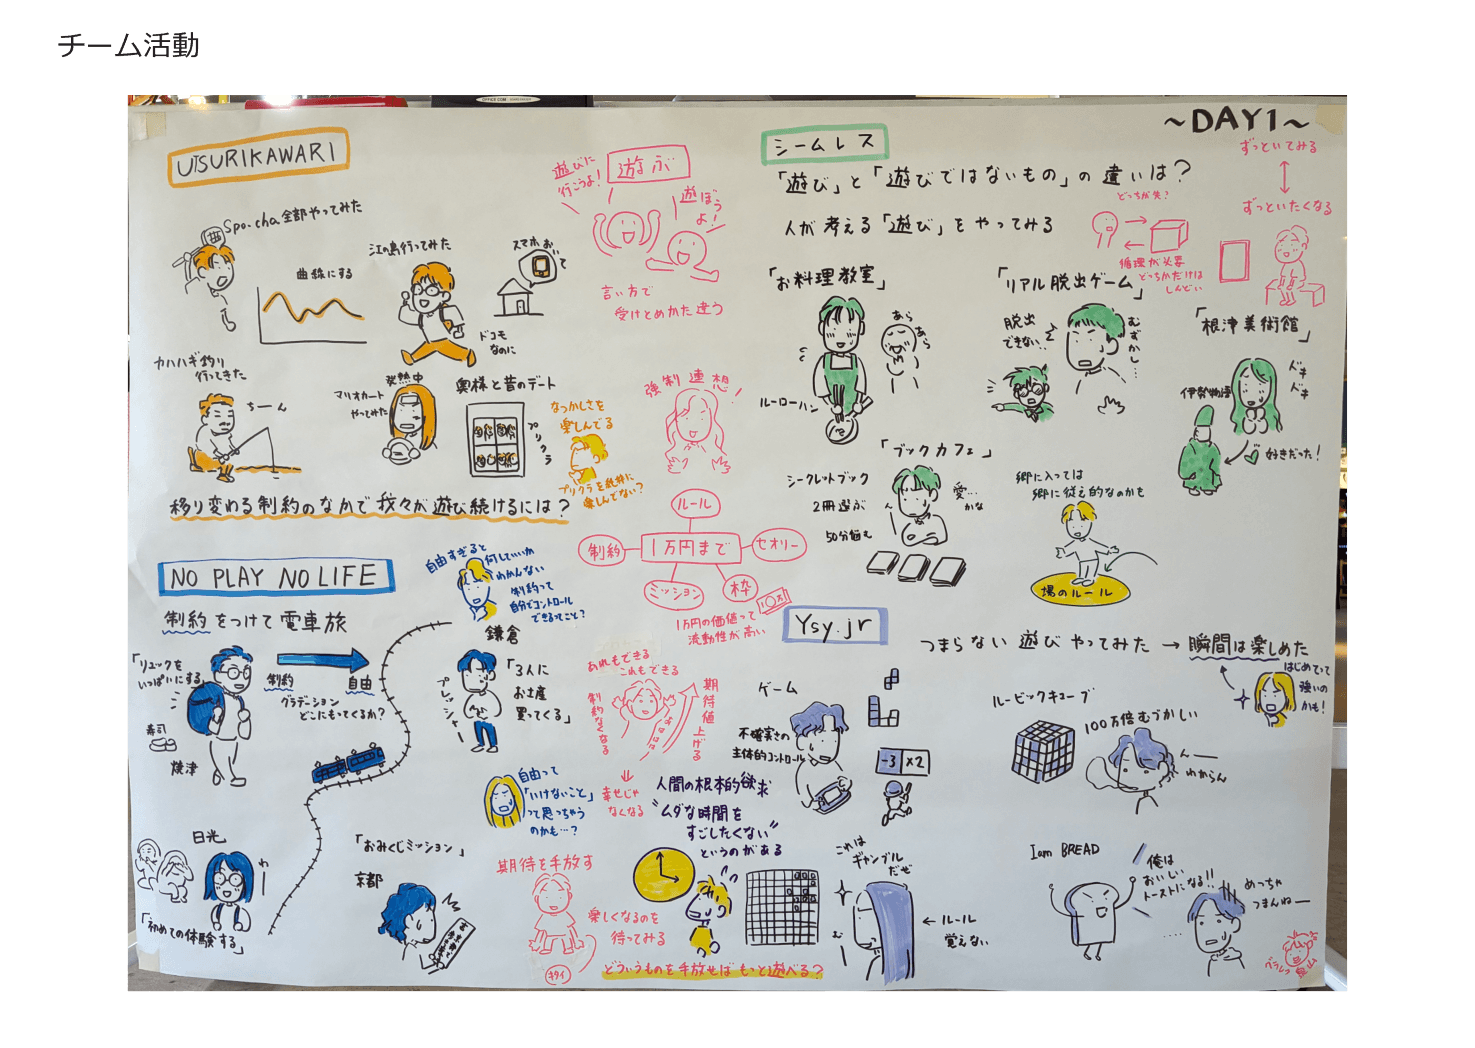 チーム活動
~DAY1~
UTSURIKAWARI
Spo-cha全部やってみた
曲線にする
江の島行ってみた
スマホおいて
ドコモ
なのに
カハハギ釣り
行ってきた
ちーん
マリオカート
やってみた
発熱中
奥様と昔のデート
プリクラ
なつかしさを
楽しんでる
プリクラを純粋に
楽しんでない?
移り変わる制約のなかで我々が遊び続けるには?
遊びに
行こうよ!
遊ぶ
遊ぼう
よ!
言い方で
受けとめかた違う
強制連想!
ルール
制約
1万円まで
セオリー
ミッション
枠
1万円の価値って
流動性が高い
シームレス
「遊び」と「遊びではないもの」の違いは?
人が考える「遊び」をやってみる
ずっといてみる
ずっといたくなる
どっちが先?
循環が必要
どっちかだけは
しんどい
「お料理教室」
あら
あら
ルーローハン
「リアル脱出ゲーム」
脱出
できない…
むずかし…
「根津美術館」
ドキ
ドキ
伊勢物語
好きだった!
「ブックカフェ」
シークレットブック
2冊選ぶ
50分悩む
愛…
かな
郷に入っては
郷に従え的なのかも
場のルール
NO PLAY NO LIFE
制約をつけて電車旅
自由すぎると
何していいか
わかんない
制約って
自分でコントロール
できるってこと?
「リュックを
いっぱいにする」
制約
自由
グラデーション
どこにもってくるか?
寿司
焼津
鎌倉
プレッシャー
「3人に
お土産
買ってくる」
自由って
「いけないこと」
って思っちゃう
のかも…?
日光
わー
「初めての体験する」
「おみくじミッション」
京都
あれもできる
これもできる
制約なくなる
期待値上げる
幸せじゃ
なくなる
期待を手放す
楽しくなるのを
待ってみる
キタイ
どういうものを手放せばもっと遊べる?
人間の根本的欲求
"ムダな時間を
すごしたくない"
というのがある
Ysy.jr
つまらない遊びやってみた→瞬間は楽しめた
はじめてって
強いの
かも!
ゲーム
不確実さの
主体的コントロール
-3 ×2
ルービックキューブ
100万倍むづかしい
んー
わからん
これは
ギャンブル
だぜ
む
←ルール
覚えない
I am BREAD
俺は
おいしい
トーストになる!!
めっちゃ
つまんねー
グラレコ